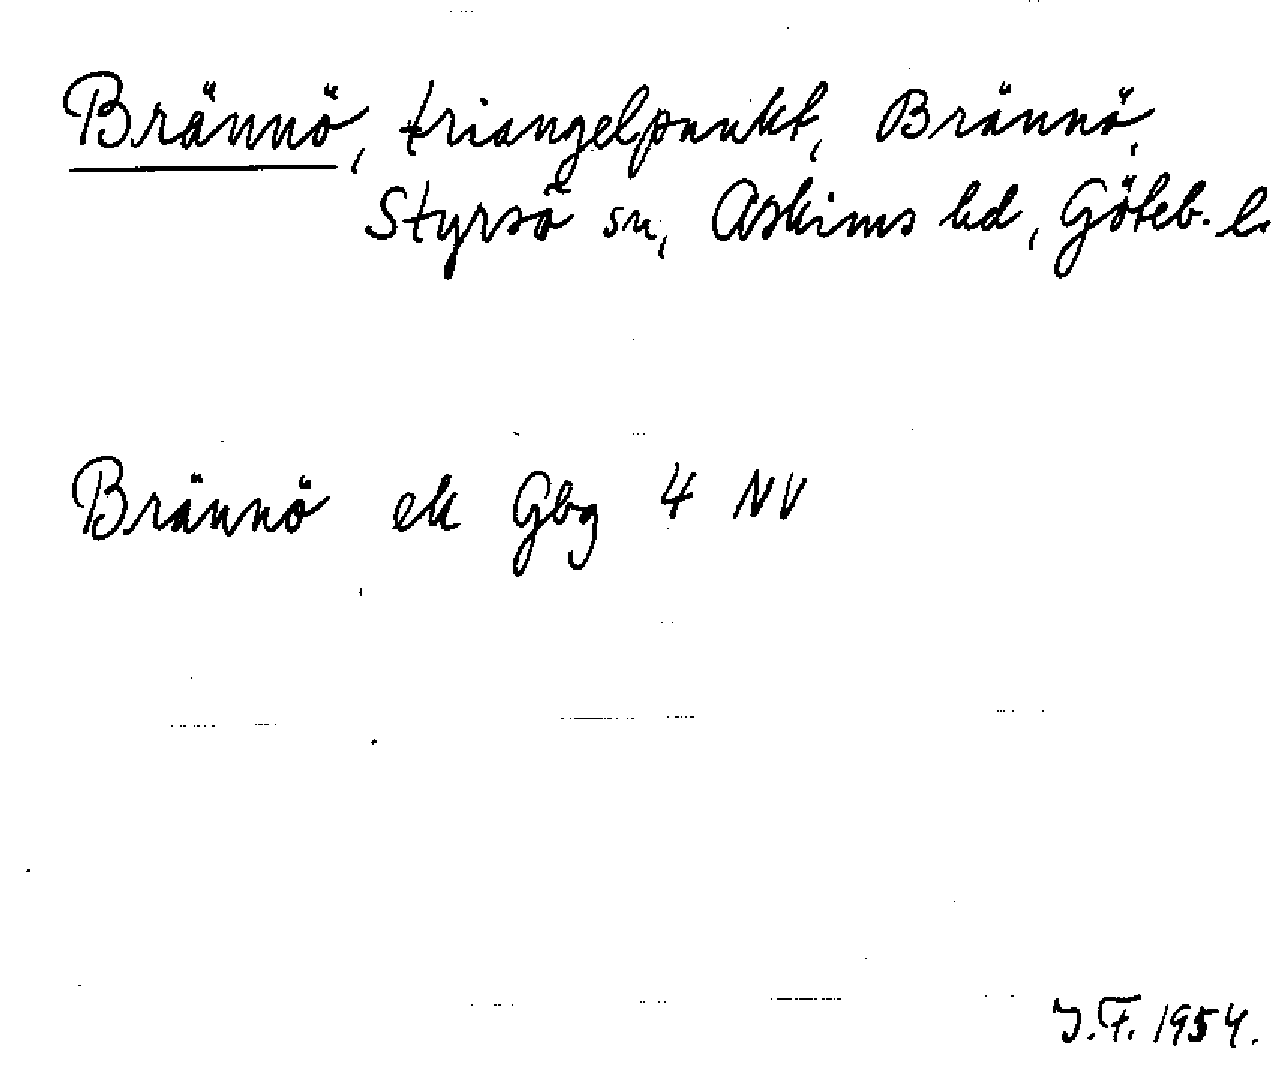 Brännö, triangelpunkt, Brännö,
Styrsö sn, Askims hd, Göteb. l.
Brännö ek Gbg 4 NV
J.F. 1954.